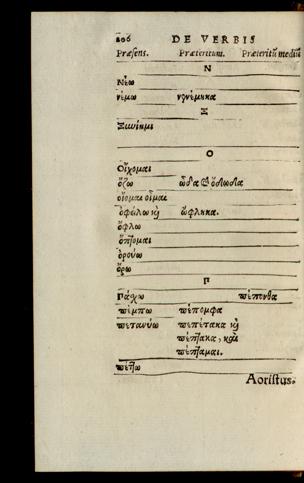 206 DE VERBIS
Præsens. Præteritum. Præteritū mediū
N
Νέω
νέμω νενέμηκα
Ξ
Ξυνίημι
O
Οἴχομαι
ὄζω ὦδα ὄδωδα
οἴομαι οἶμαι
ὀφείλω ὤφληκα.
ὄφλω
ὄπτομαι
ὀρούω
ὄρω
Π
Πάχω πέπονθα
πέμπω πέπομφα
πετανύω πεπέτακα καὶ
πέπτακα, καὶ
πέπταμαι.
Aoristus.